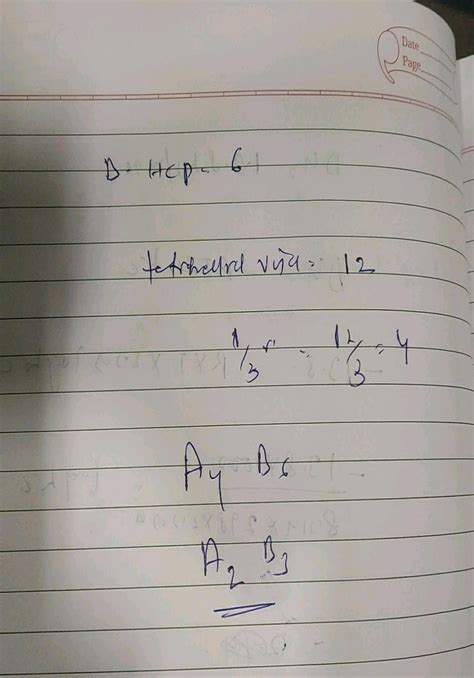 Date
Page
B - HCP - 6
tetrahedral void = 12
1/3 = 12/3 = 4
A4 B6
A2 B3